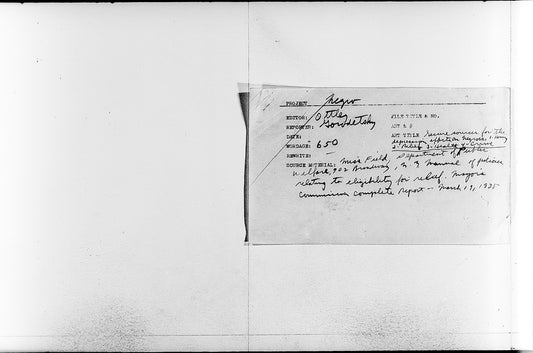 PROJECT Negro
EDITOR: Ottley FILE TITLE & NO.
REPORTER: Gorodetsky ART # @
DATE: ART TITLE Secure sources for the
WORDAGE: 650 depression affects on Negroes
REWRITE: — 2. Relief 3. Health 4. Crime
SOURCE MATERIAL: Miss Field, Department of Public
Welfare, 902 Broadway, N.Y. Manual of policies
relating to eligibility for relief. Mayor's
Commission complete report -- March 19, 1935